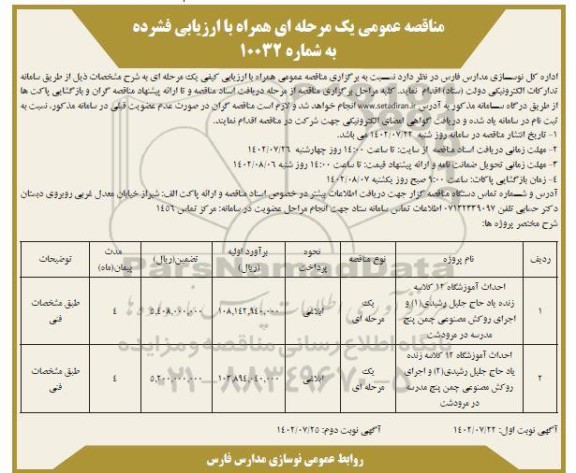 مناقصه عمومی یک مرحله ای همراه با ارزیابی فشرده
به شماره ۱۰۰۳۲
اداره کل نوسازی مدارس فارس در نظر دارد نسبت به برگزاری مناقصه عمومی همراه با ارزیابی کیفی یک مرحله ای به شرح مشخصات ذیل از طریق سامانه
تدارکات الکترونیکی دولت (ستاد) اقدام نماید. کلیه مراحل برگزاری مناقصه از مرحله دریافت اسناد مناقصه و تا ارائه پیشنهاد مناقصه گران و بازگشایی پاکت ها
از طریق درگاه سامانه مذکور به آدرس www.setadiran.ir انجام خواهد شد و لازم است مناقصه گران در صورت عدم عضویت قبلی در سامانه مذکور، نسبت به
ثبت نام در سامانه یاد شده و دریافت گواهی امضای الکترونیکی جهت شرکت در مناقصه اقدام نمایند.
۱- تاریخ انتشار مناقصه در سامانه روز شنبه ۱۴۰۲/۰۷/۲۲ می باشد.
۲- مهلت زمانی دریافت اسناد مناقصه از سایت: تا ساعت ۱۴:۰۰ روز چهارشنبه ۱۴۰۲/۰۷/۲۶
۳- مهلت زمانی تحویل ضمانت نامه و ارائه پیشنهاد قیمت: تا ساعت ۱۴:۰۰ روز شنبه ۱۴۰۲/۰۸/۰۶
۴- زمان بازگشایی پاکات: ساعت ۹:۰۰ صبح روز یکشنبه ۱۴۰۲/۰۸/۰۷
آدرس و شماره تماس دستگاه مناقصه گزار جهت دریافت اطلاعات بیشتر در خصوص اسناد مناقصه و ارائه پاکت الف: شیراز خیابان معدل غربی روبروی دبستان
دکتر حسابی تلفن ۰۷۱۳۲۳۳۹۰۹۷ اطلاعات تماس سامانه ستاد جهت انجام مراحل عضویت در سامانه: مرکز تماس ۱۴۵۶
شرح مختصر پروژه ها:
ردیف نام پروژه نوع مناقصه نحوه پرداخت برآورد اولیه (ریال) تضمین(ریال) مدت پیمان(ماه) توضیحات
۱ احداث آموزشگاه ۱۲ کلاسه
زنده یاد حاج جلیل رشیدی(۱) و
اجرای روکش مصنوعی چمن پنج
مدرسه در مرودشت
یک مرحله ای ابلاغی ۱۰۸,۱۴۲,۹۴۰,۰۰۰ ۵,۴۰۸,۰۰۰,۰۰۰ ۴ طبق مشخصات فنی
۲ احداث آموزشگاه ۱۲ کلاسه زنده
یاد حاج جلیل رشیدی(۲) و اجرای
روکش مصنوعی چمن پنج مدرسه
در مرودشت
یک مرحله ای ابلاغی ۱۰۳,۸۹۴,۰۴۰,۰۰۰ ۵,۲۰۰,۰۰۰,۰۰۰ ۴ طبق مشخصات فنی
ParsNamadData
پایگاه اطلاع رسانی مناقصه و مزایده
۰۲۱-۸۸۳۴۹۶۷۰-۵
آگهی نوبت اول: ۱۴۰۲/۰۷/۲۲ آگهی نوبت دوم: ۱۴۰۲/۰۷/۲۵
روابط عمومی نوسازی مدارس فارس